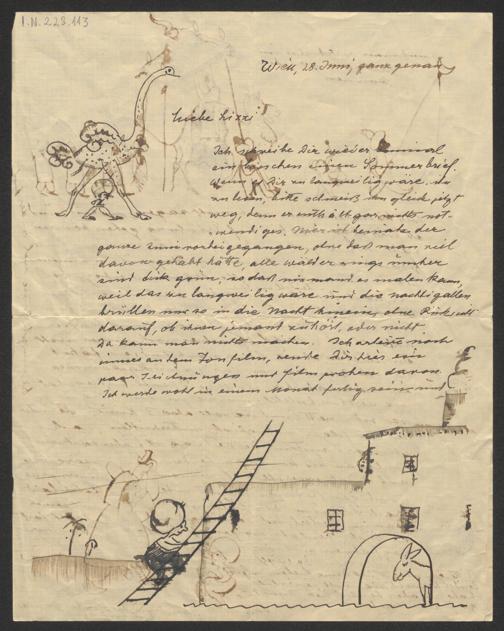 I.N. 228.113
Wien, 28. Juni, ganz genau
Liebe Lizzi
Ich schreibe Dir wieder einmal
ein bisschen einen Sommerbrief.
Wenn es Dir zu langweilig wäre, ihn
zu lesen, bitte schmeiß ihn gleich jetzt
weg, denn er enthält gar nichts not-
wendiges. Hier ist beinahe der
ganze Juni vorbeigegangen, ohne daß man viel
davon gehabt hätte, alle Wälder rings umher
sind dick grün, so daß niemand es malen kann,
weil das zu langweilig wäre und die Nachtigallen
brüllen nur so in die Nacht hinein, ohne Rücksicht
darauf, ob ihnen jemand zuhört, oder nicht.
Da kann man nichts machen. Ich arbeite noch
immer an dem Tonfilm, sende Dir hier ein
paar Zeichnungen und Filmproben davon.
Ich werde wohl in einem Monat fertig sein, und